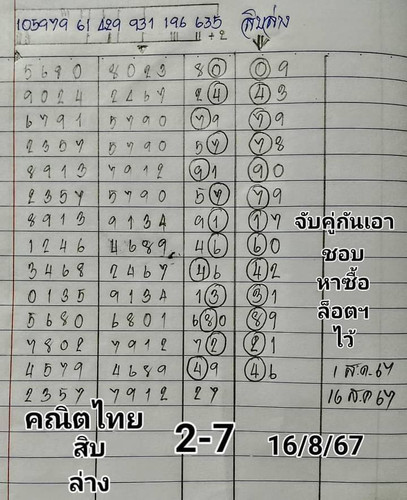 105979 61 429 931 196 635 สิบล่าง
11 + 2
5680 8023 80 09
9024 2467 24 43
6791 5790 79 79
2357 5790 57 78
8913 7912 91 90
2357 5790 57 79
8913 9134 91 17
1246 4689 46 60
3468 2467 46 42
0135 9134 13 31
5680 6801 680 89
7802 7912 72 21
4579 4689 49 46 1 ส.ค.67
2357 7912 27 16 ส.ค 67
จับคู่กันเอา
ชอบ
หาซื้อ
ล็อตฯ
ไว้
คณิตไทย
สิบ
ล่าง
2-7
16/8/67